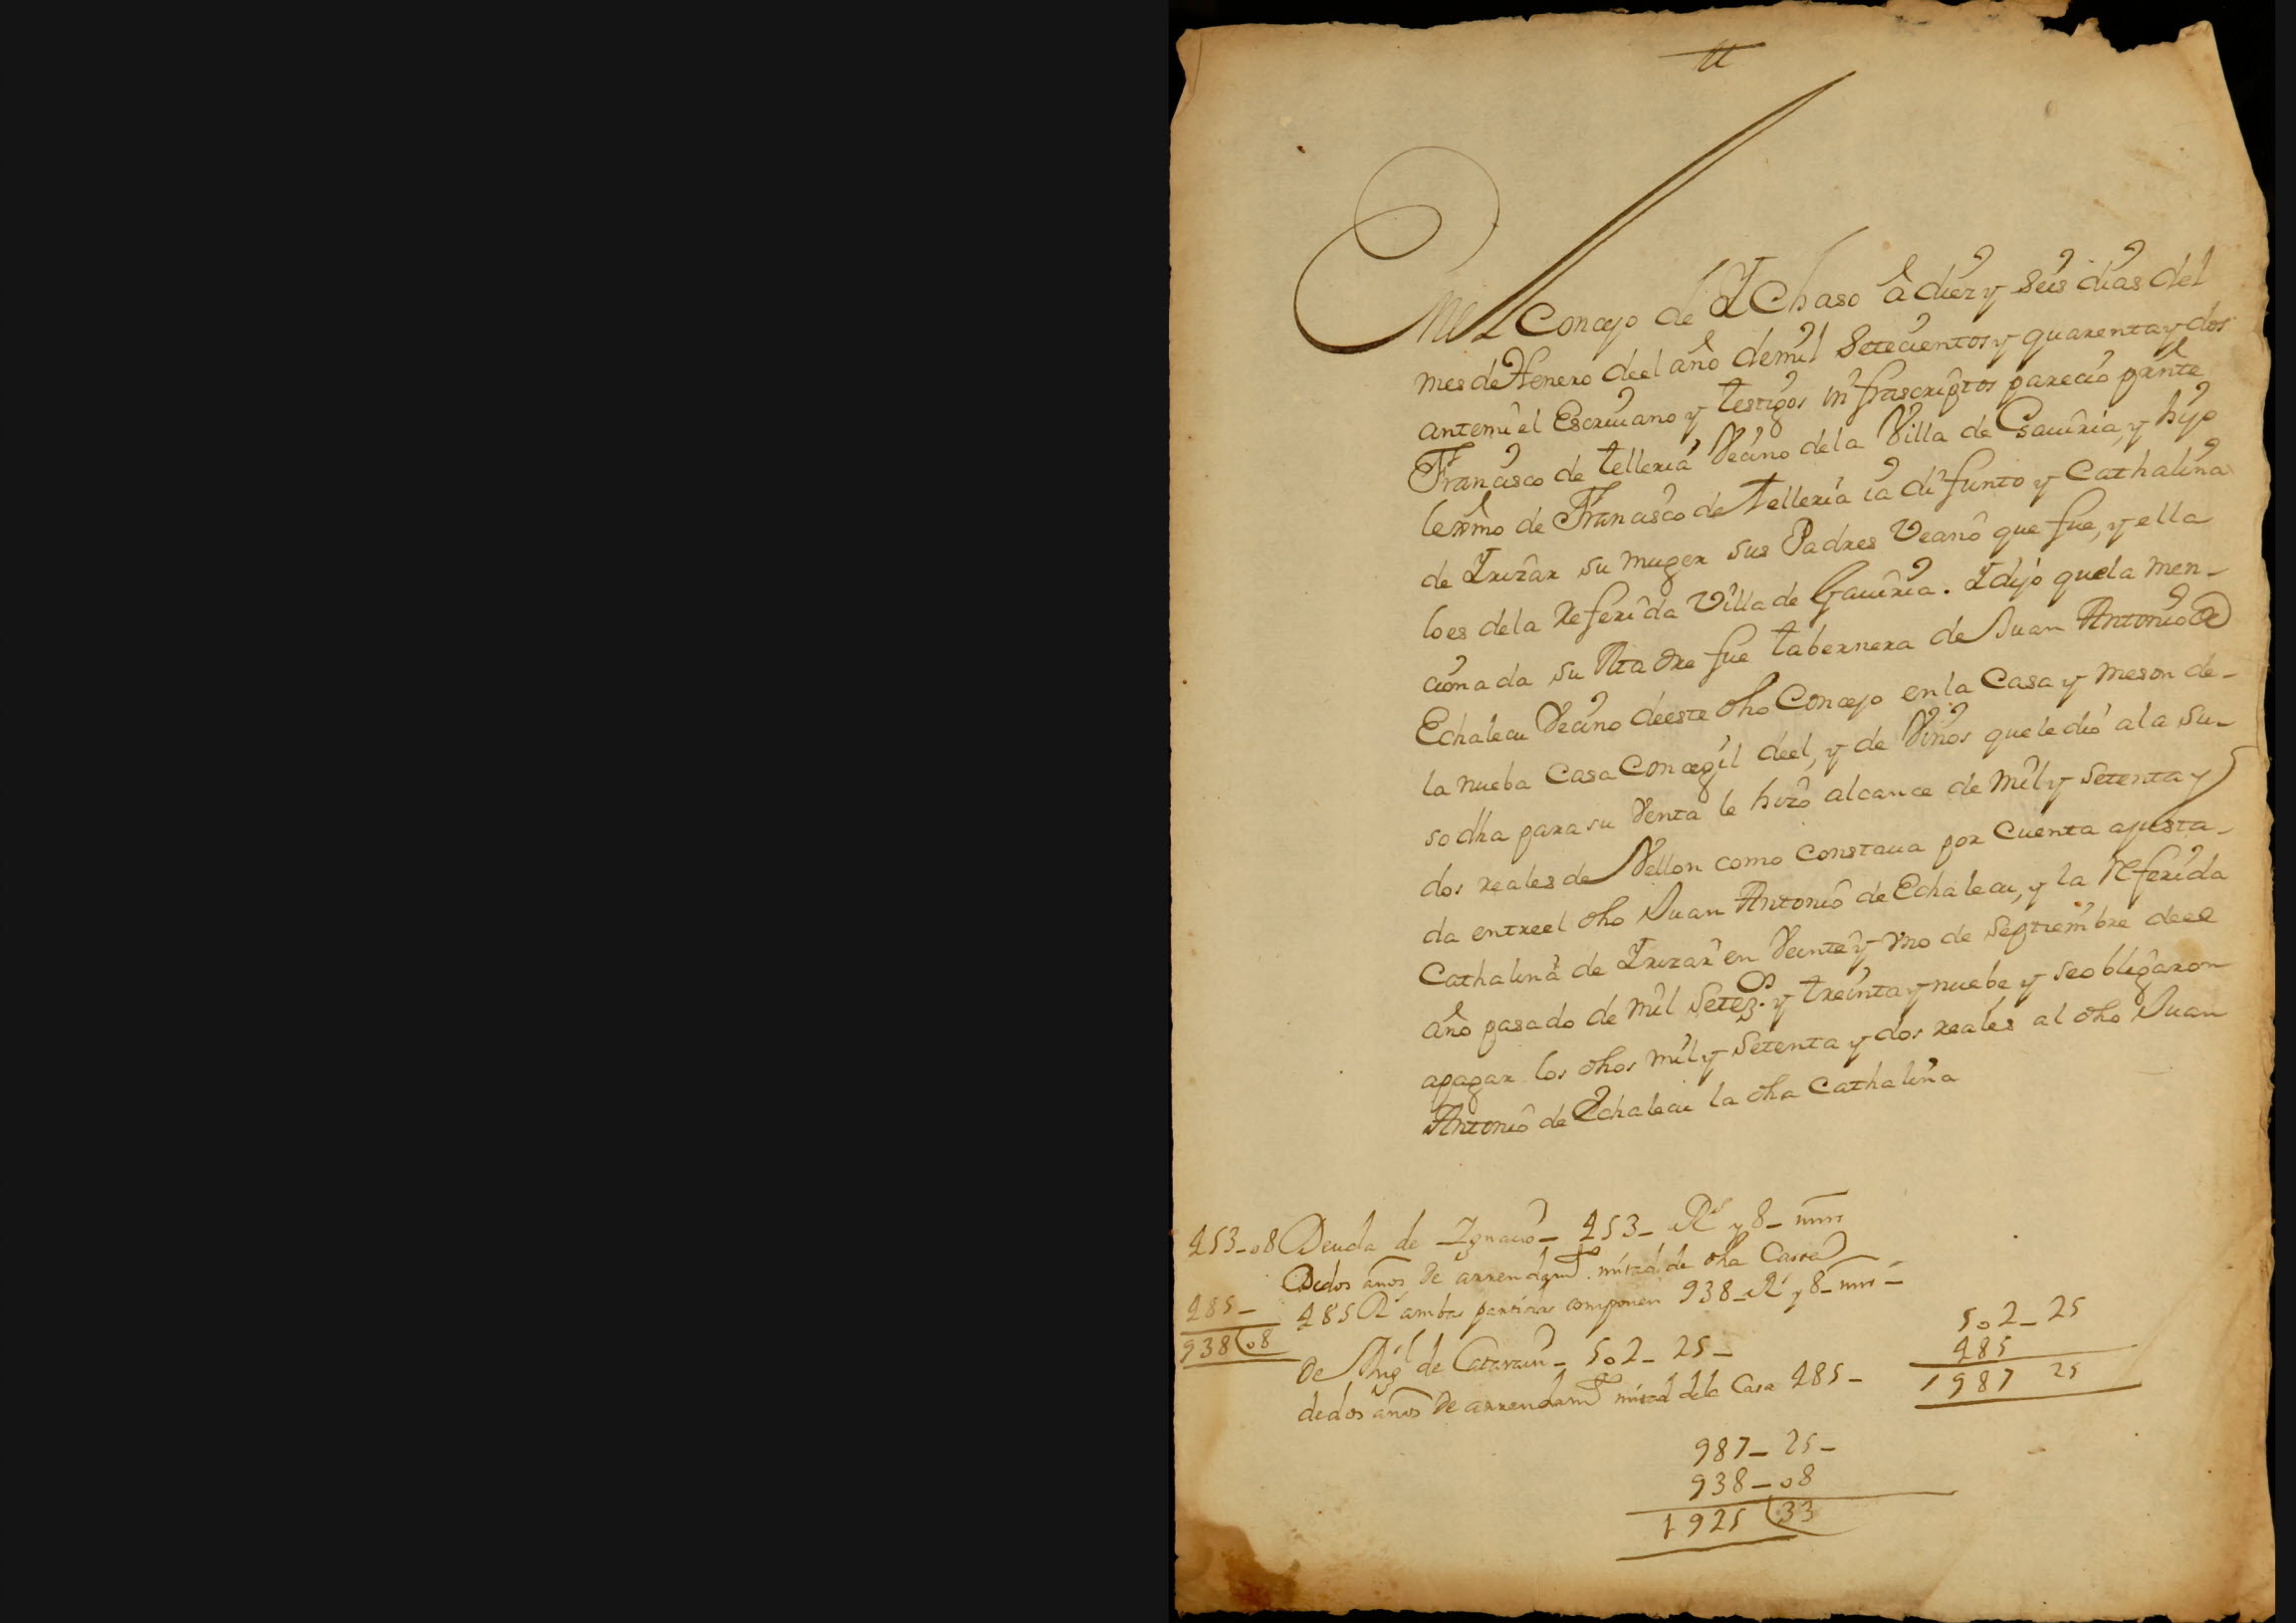 En el Concejo de YChaso â diez y seis dias del
mes de Henero deel año de mil setecientos y quarenta y dos
ante mi el Escriuano y testigos infrascriptos parecio pressnte
Francisco de telleria Vecino de la Villa de Gauiria, y hijo
lexmo de Francisco de Telleria ia difunto y Cathalina
de Yrizar su muger sus Padres Vecino que fue, y ella
lo es dela Referida Villa de Gauiria. Y dijo quela men-
cionada su Madre fue tabernera de Juan Antonio de
Echalecu Vecino deeste dho Concejo en la Casa y meson de-
la nueba Casa Concegil deel, y de Vinos que le dió ala su-
so dha para su Venta le hizo alcance de mil y setenta y
dos reales de Vellon como constaua por cuenta ajusta-
da entre el dho Juan Antonio de Echalecu, y la Referida
Cathalina de Yrizar en Veinte y vno de septiembre deel
año pasado de mil setezos. y treinta y nuebe y se obligaron
a pagar los dhos mil y setenta y dos reales al dho Juan
Antonio de Echalecu la dha Cathalina
453-08 Deuda de Ygnacio - 453- Rs y 8- mrs
De dos años de arrendamto. mitad de dha Cassa
485- 485 Rs ambas partidas componen 938- Rs y 8- mrs -
938 08
De Migl de - 502- 25-
de dos años de arrendamto mitad dela Casa 485-
502- 25
485
1987 25
987- 25-
938-08
1925 33